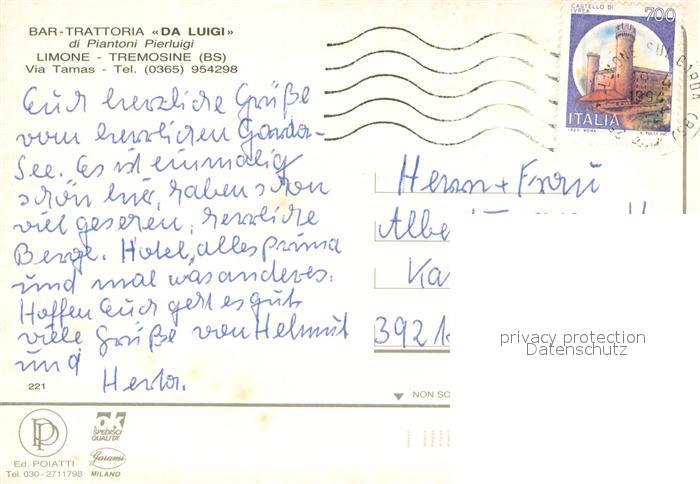 BAR-TRATTORIA «DA LUIGI»
di Piantoni Pierluigi
LIMONE - TREMOSINE (BS)
Via Tamas - Tel. (0365) 954298
Euch herzliche Grüße
vom herrlichen Garda-
See. Es ist einmalig
schön hier, haben schon
viel gesehen, herrliche
Berge. Hotel, alles prima
und mal was anderes.
Hoffen Euch geht es gut
viele Grüße von Helmut
und
Herta.
221
CASTELLO DI
IVREA
700
ITALIA
Herrn + Frau
Albe
Ka
3921
privacy protection
Datenschutz
NON SC
PP
Ed. POIATTI
Tel. 030-2711798
ok
SPEDISCI
QUALITÀ
Garami
MILANO